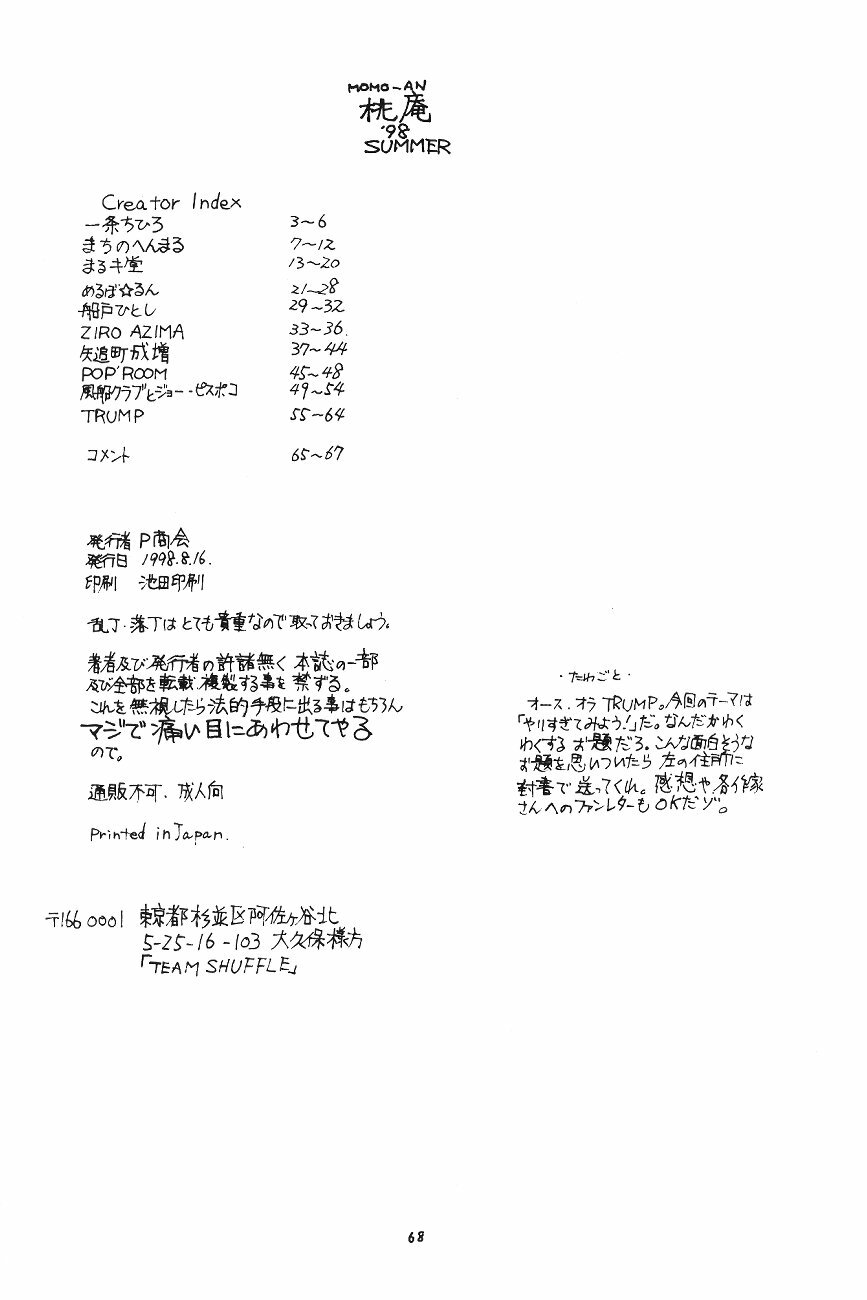 MOMO-AN
桃庵
'98
SUMMER
Creator Index
一条ちひろ 3~6
まちのへんまる 7~12
まるキ堂 13~20
めるば☆るん 21~28
船戸ひとし 29~32
ZIRO AZIMA 33~36.
矢追町成増 37~44
POP'ROOM 45~48
風船クラブとジョー・ピスポコ 49~54
TRUMP 55~64
コメント 65~67
発行者 P商会
発行日 1998.8.16.
印刷 池田印刷
乱丁・落丁はとても貴重なので取っておきましょう。
著者及び発行者の許諾無く本誌の一部
及び全部を転載、複製する事を禁ずる。
これを無視したら法的手段に出る事はもちろん
マジで痛い目にあわせてやる
ので。
通販不可、成人向
Printed in Japan.
・たわごと・
オース、オラTRUMP。今回のテーマは
「やりすぎてみよう!」だ。なんだかわく
わくするお題だろ。こんな面白そうな
お題を思いついたら左の住所に
封書で送ってくれ。感想や各作家
さんへのファンレターもOKだゾ。
〒166 0001 東京都杉並区阿佐ヶ谷北
5-25-16-103 大久保様方
「TEAM SHUFFLE」
68